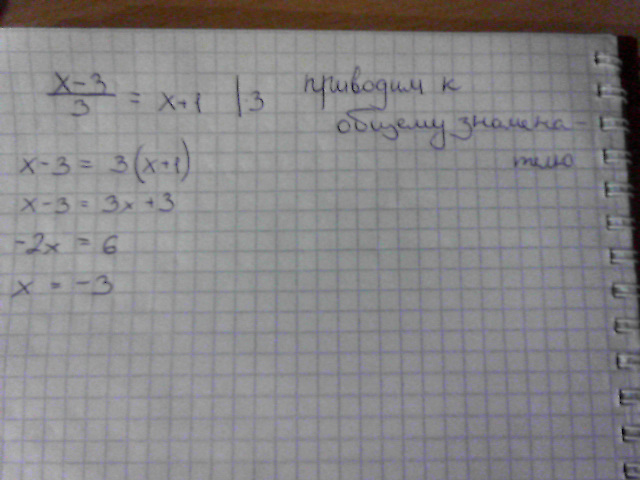 x-3
3 = x+1 | 3 приводим к
общему знамена-
телю
x-3 = 3(x+1)
x-3 = 3x+3
-2x = 6
x = -3